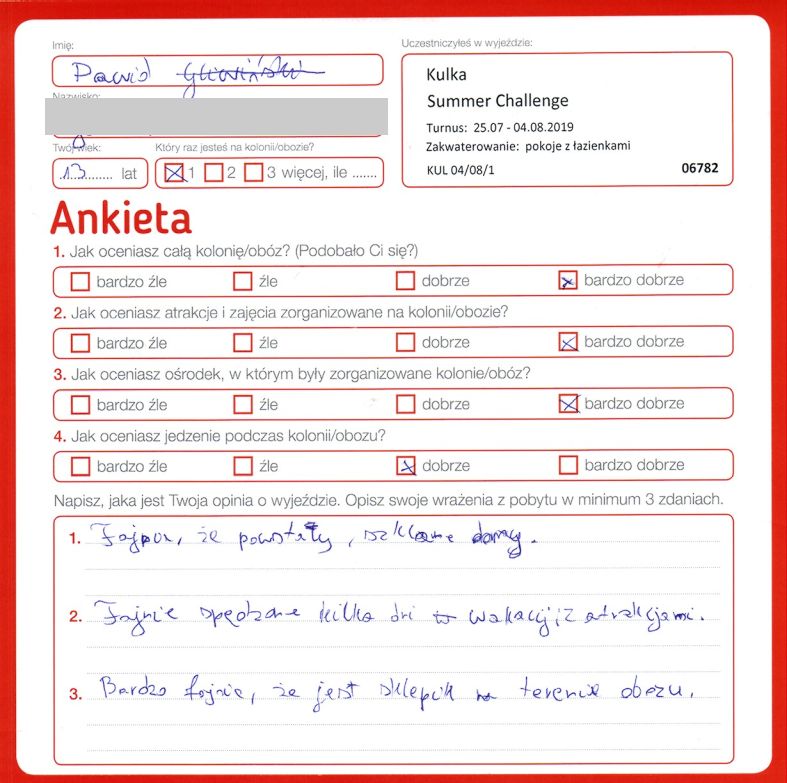 Imię:
Dawid
Nazwisko:
Twój wiek:
13 lat
Który raz jesteś na kolonii/obozie?
1 2 3 więcej, ile .......
Uczestniczyłeś w wyjeździe:
Kulka
Summer Challenge
Turnus: 25.07 - 04.08.2019
Zakwaterowanie: pokoje z łazienkami
KUL 04/08/1 06782
Ankieta
1. Jak oceniasz całą kolonię/obóz? (Podobało Ci się?)
bardzo źle źle dobrze bardzo dobrze
2. Jak oceniasz atrakcje i zajęcia zorganizowane na kolonii/obozie?
bardzo źle źle dobrze bardzo dobrze
3. Jak oceniasz ośrodek, w którym były zorganizowane kolonie/obóz?
bardzo źle źle dobrze bardzo dobrze
4. Jak oceniasz jedzenie podczas kolonii/obozu?
bardzo źle źle dobrze bardzo dobrze
Napisz, jaka jest Twoja opinia o wyjeździe. Opisz swoje wrażenia z pobytu w minimum 3 zdaniach.
1. że powstały, szklane domy.
2. Fajnie spędzone kilka dni wakacji; z atrakcjami.
3. Bardzo fajnie, że jest sklepik na terenie obozu.